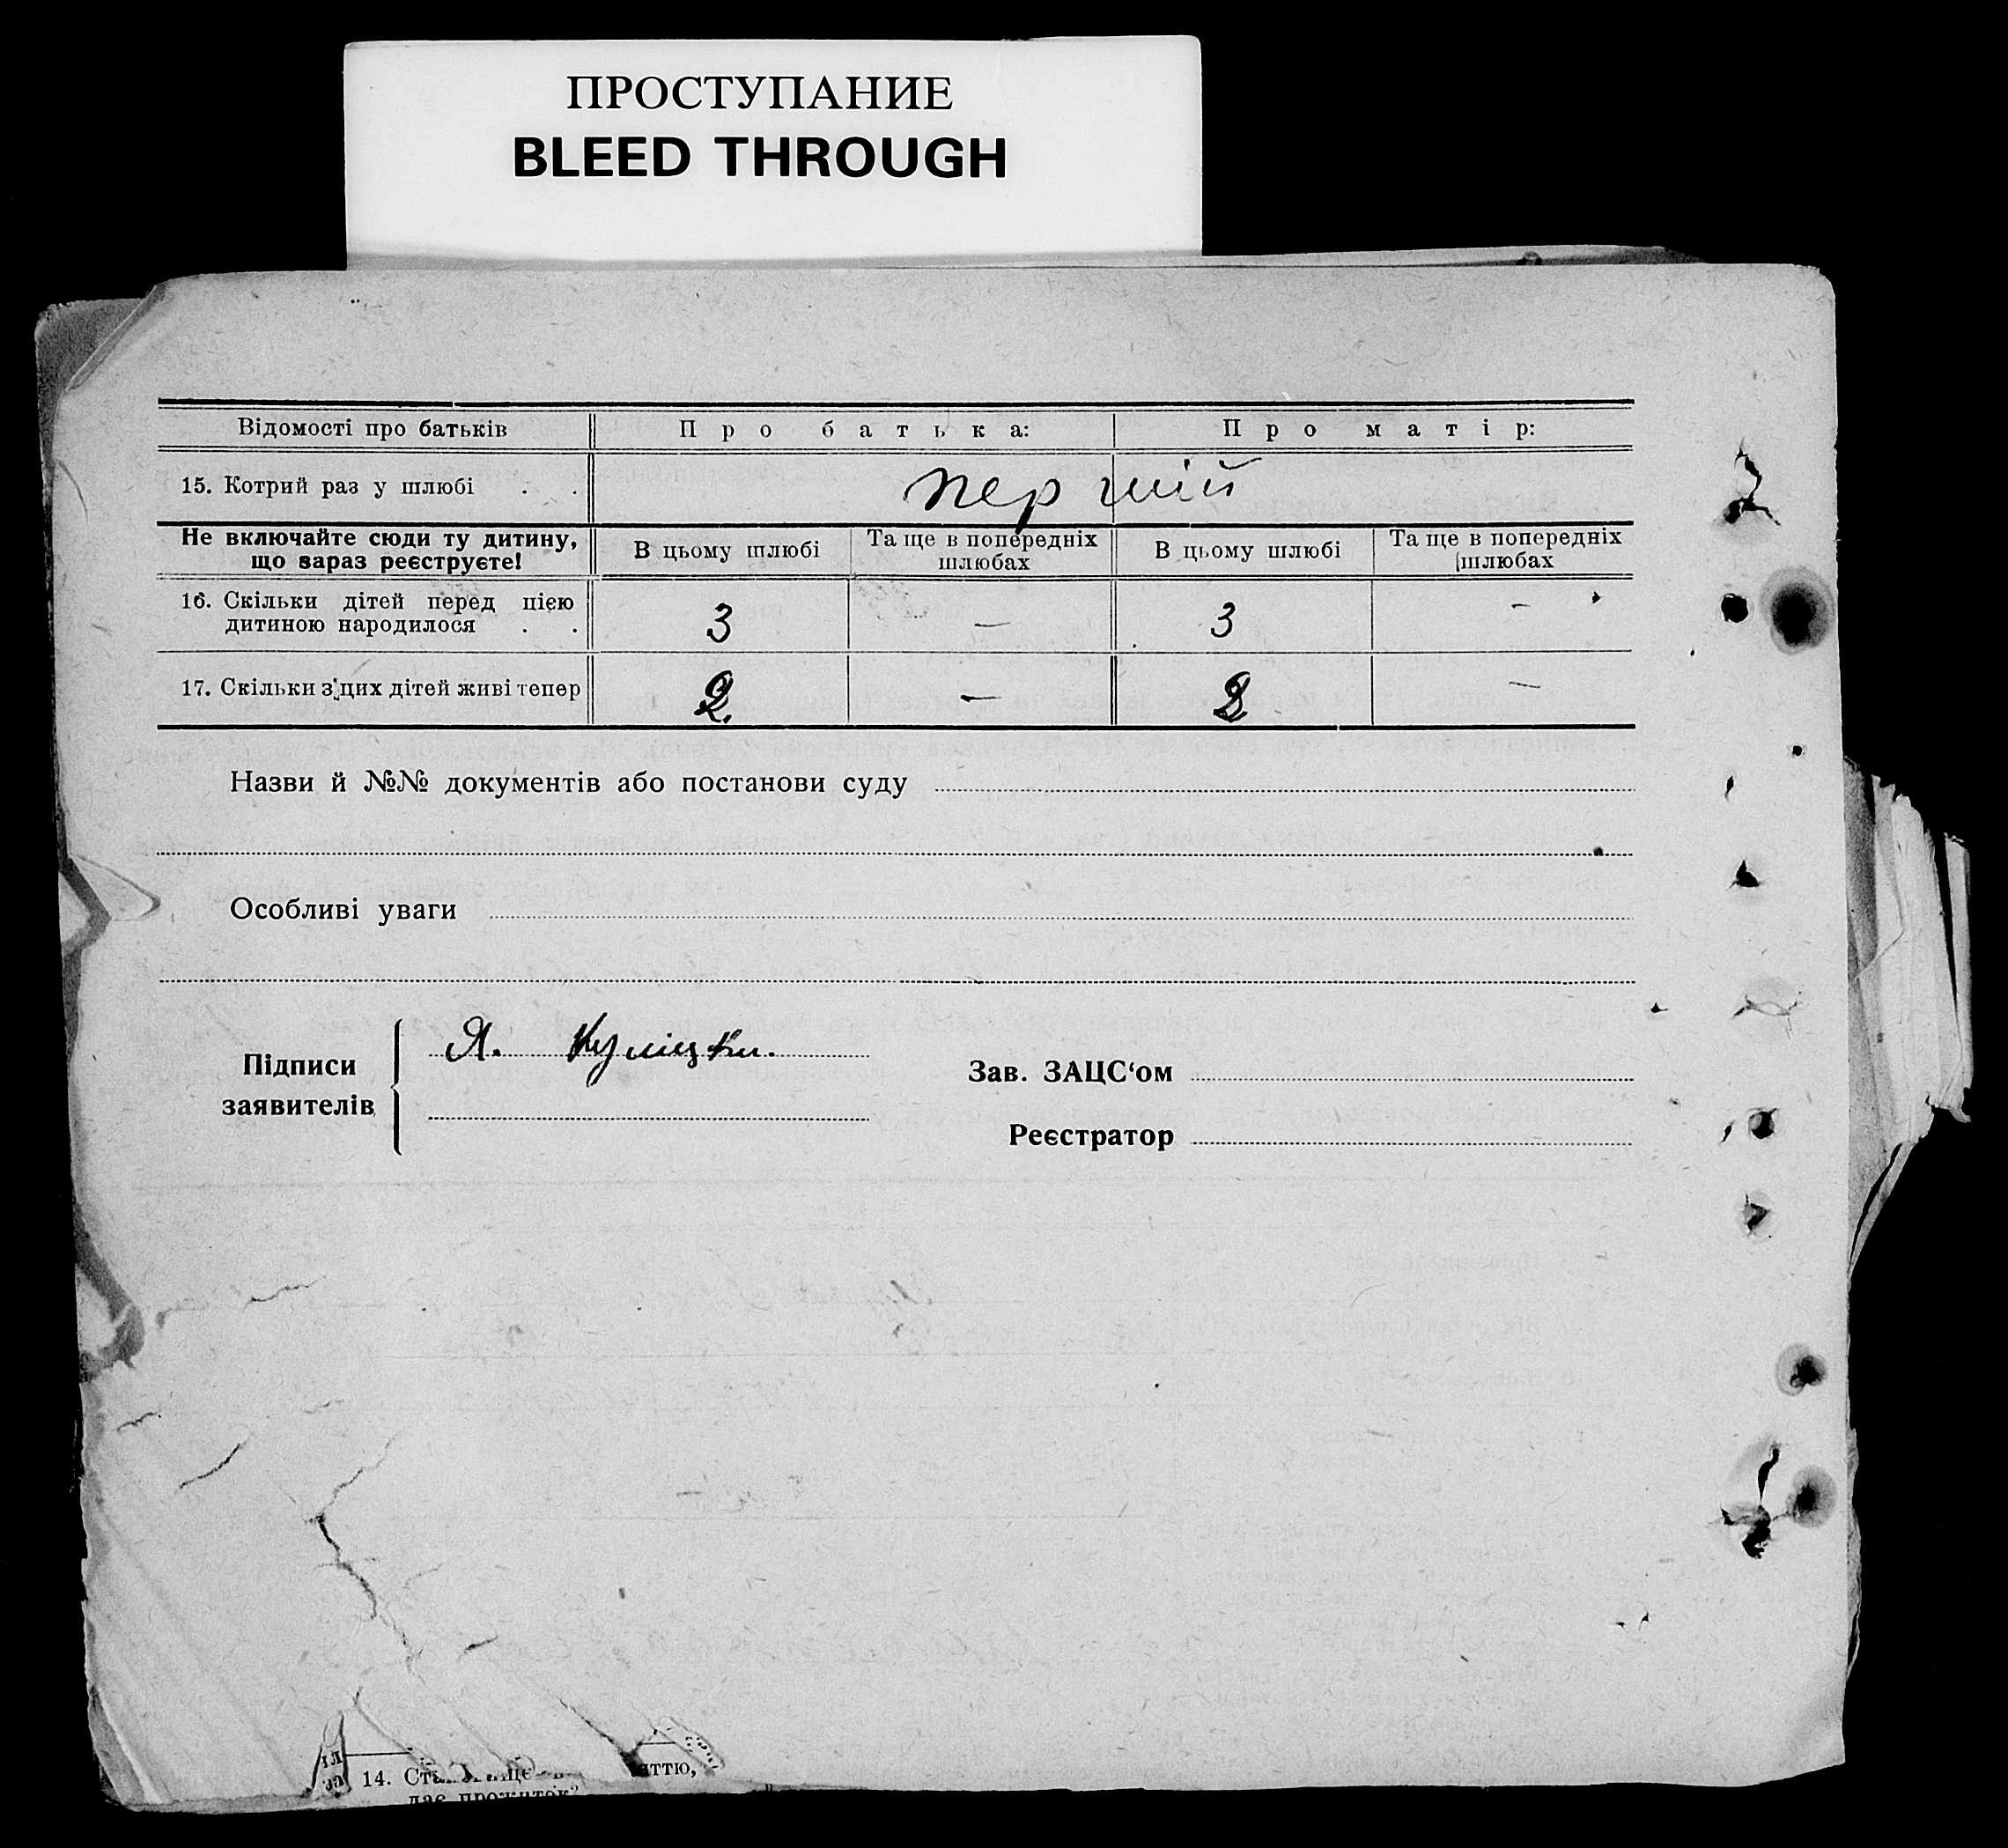 ПРОСТУПАНИЕ
BLEED THROUGH
Відомості про батьків Про батька: Про матір:
15. Котрий раз у шлюбі . . перший
Не включайте сюди ту дитину, що зараз реєструєте! В цьому шлюбі Та ще в попередніх шлюбах В цьому шлюбі Та ще в попередніх шлюбах
16. Скільки дітей перед цією
дитиною народилося . . 3 — 3 —
17. Скільки з цих дітей живі тепер 2 — 2 —
Назви й №№ документів або постанови суду
Особливі уваги
Підписи
заявителів
Я.
Зав. ЗАЦС‘ом
Реєстратор
14.
дає прожиток?